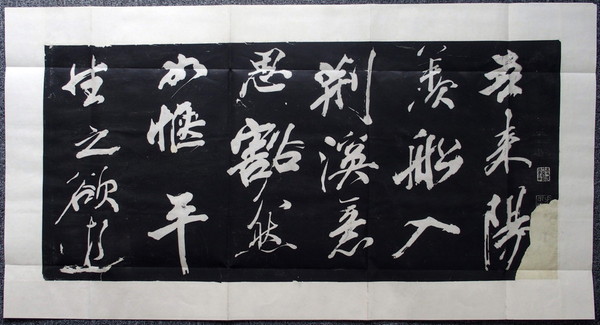 吾来陽
羨舩入
荆溪意
思豁然
如愜平
生之欲逝